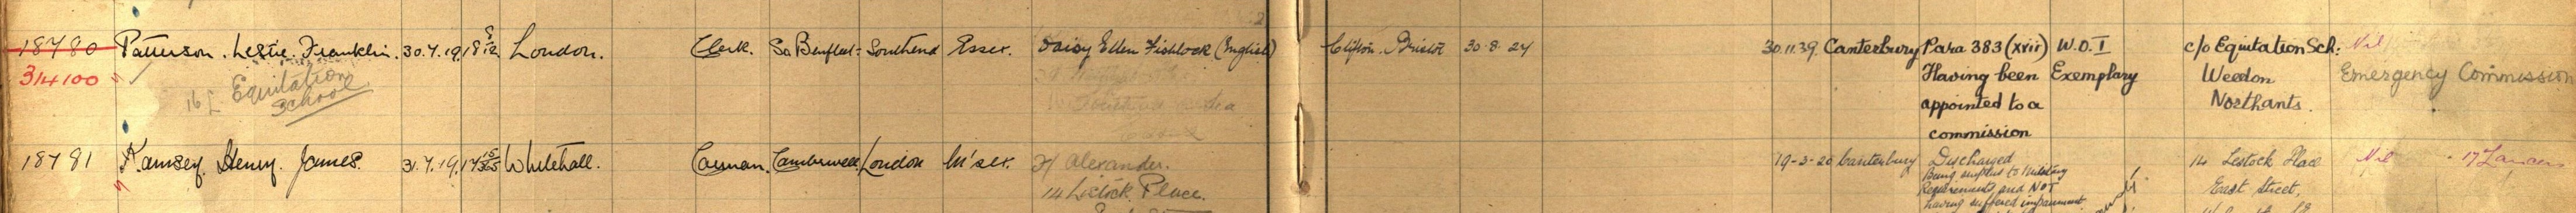 18780 Patterson. Leslie. Franklin. 30.7.19. 18 8/12 London. Clerk. So Benfleet = Southend Essex. Daisy Ellen Fishlock (English) Clifton. Bristol 30.8.24 30.11.39. Canterbury Para 383 (xvii) W.O.I c/o Equitation Sch: Nil
314100 Equitation School Having been Exemplary Weedon Emergency Commission
appointed to a Northants.
commission
18781 Ramsey. Henry. James. 31.7.19. Whitehall. Carman. Camberwell London M'sex. F/ Alexander. 19-3-20 Canterbury Discharged 14 Lestock Place Nil 17 Lancers
14 Lestock Place. Being surplus to Military East Street,
Requirements and NOT
having suffered impairment